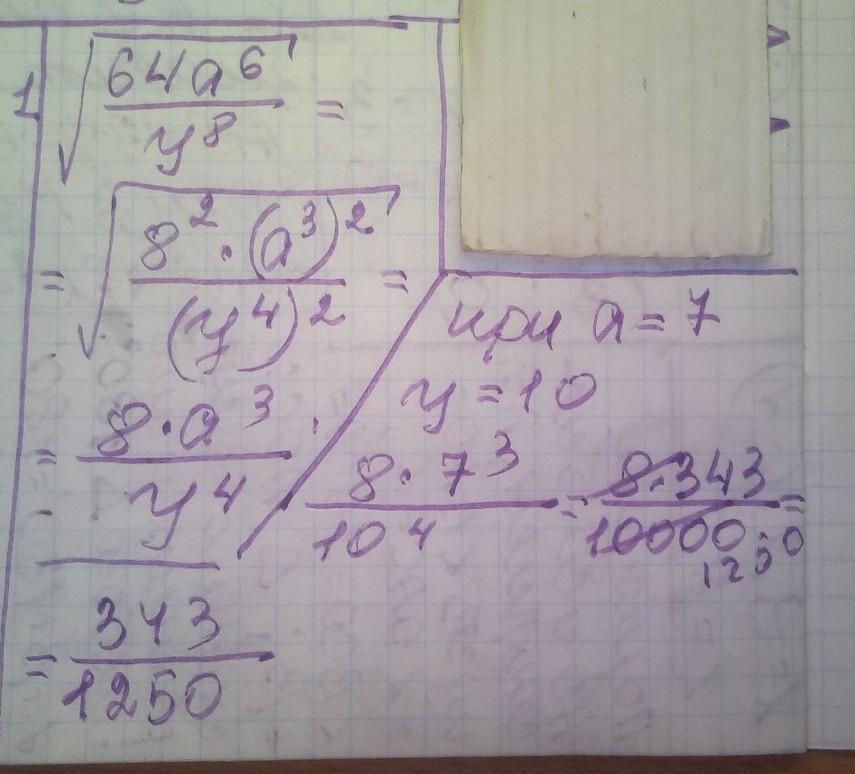 1
√(64a⁶/y⁸) =
= √(8² · (a³)²/(y⁴)²) =
= 8 · a³/y⁴
при a = 7
y = 10
8 · 7³/10⁴ = 8 · 343/10000 =
1250
= 343/1250